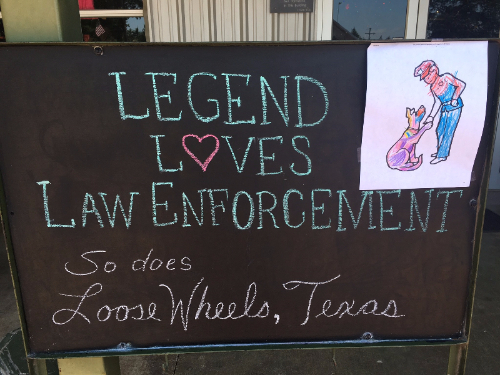 LEGEND
L♡VES
LAW ENFORCEMENT
So does
Loose Wheels, Texas